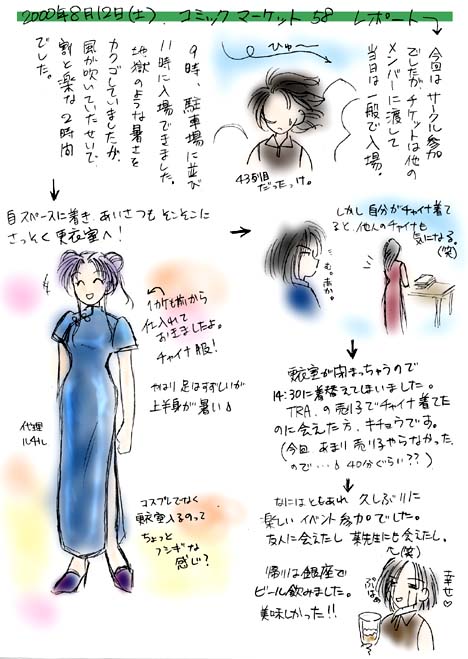 2000年8月12日(土). コミックマーケット58 レポート
今回はサークル参加
でしたが、チケットは他の
メンバーに渡して
当日は一般で入場。
ひゅ〜
435列目
だったっけ。
9時、駐車場に並び
11時に入場できました。
地獄のような暑さを
カクゴしていましたが、
風が吹いていたせいで、
割と楽な2時間
でした。
自スペースに着き、あいさつもそこそこに
さっそく更衣室へ!
イカケも前から
仕入れて
おきましたよ。
チャイナ服!
やはり足はすずしいが
上半身が暑い
代理
ルチル
コスプレでなく
更衣室入るのって
ちょっと
フシギな
感じ?
しかし自分がチャイナ着て
ると、他人のチャイナも
気になる。
(笑)
む。赤か。
更衣室が閉まっちゃうので
14:30に着替えてしまいました。
TRA.の売り子でチャイナ着てた
のに会えた方、キチョウです。
(今回あまり売り子やらなかった
ので…40分ぐらい??)
なにはともあれ 久しぶりに
楽しいイベント参加でした。
友人に会えたし 葉先生にも会えたし。
(笑)
帰りは銀座で
ビール飲みました。
美味しかった!!
ぷはぁ
幸せ♡